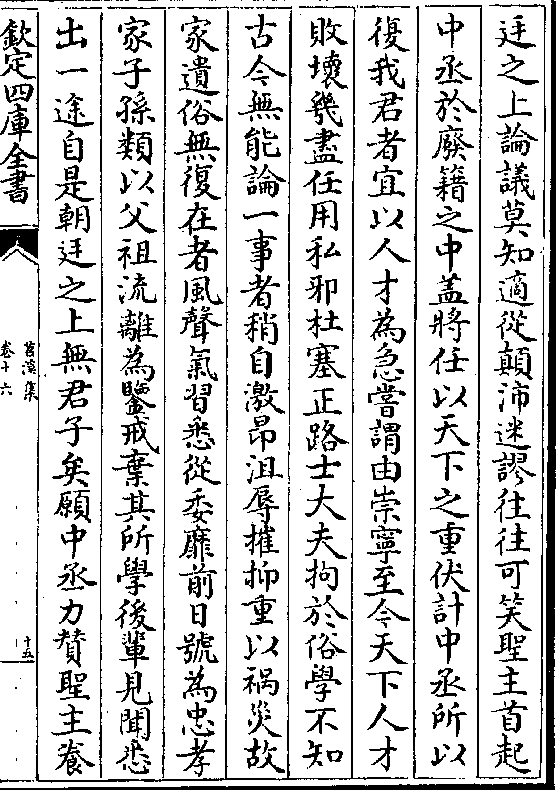 廷之上論議莫知適從顛沛迷謬往往可笑聖主首起
中丞於廢籍之中蓋將任以天下之重伏計中丞所以
復我君者宜以人才為急嘗謂由崇寧至今天下人才
敗壞幾盡任用私邪杜塞正路士大夫拘於俗學不知
古今無能論一事者稍自激昂沮辱摧抑重以禍災故
家遺俗無復在者風聲氣習悉從委靡前日號為忠孝
家子孫類以父祖流離為鑒戒棄其所學後輩見聞悉
出一途自是朝廷之上無君子矣願中丞力贊聖主養
欽定四庫全書
苕溪集
卷十六
十五